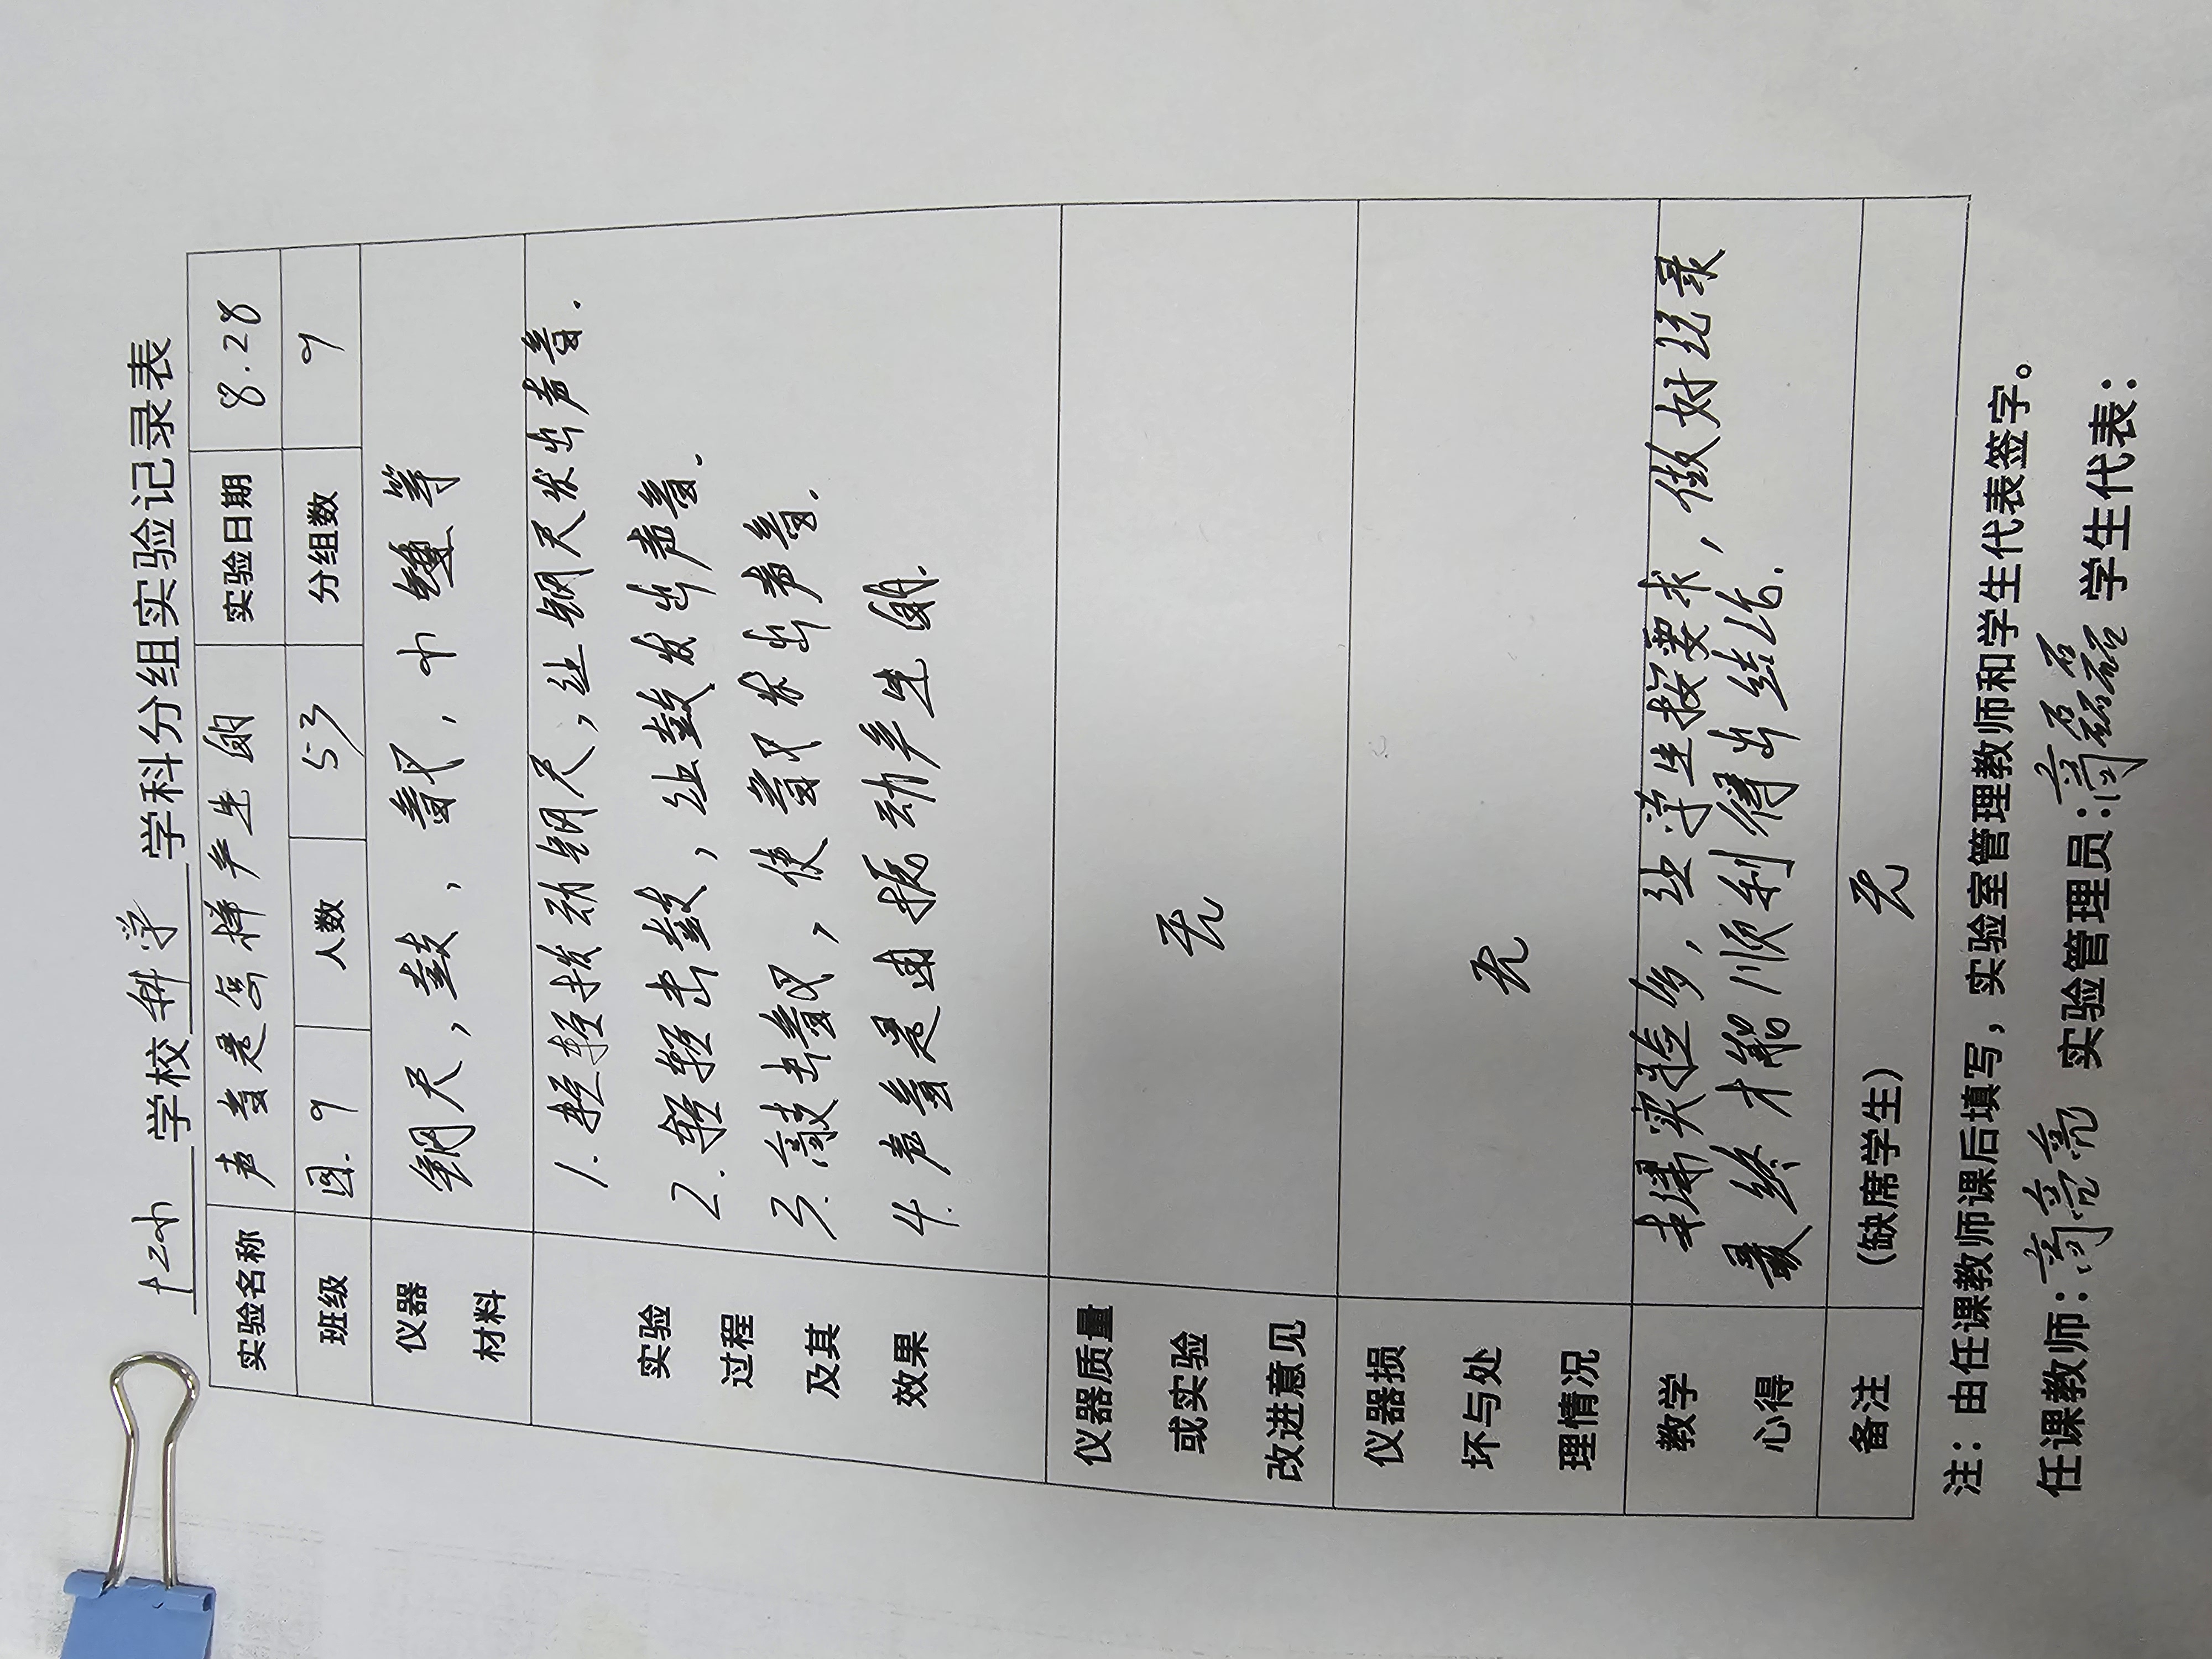 十二中 学校 科学 学科分组实验记录表
实验名称 声音是怎样产生的 实验日期 8.28
班级 四.9 人数 53 分组数 9
仪器 材料 钢尺,鼓、音叉,小锤等
实验 过程 及其 效果
1.轻轻拨动钢尺,让钢尺发出声音.
2.轻轻击鼓,让鼓发出声音.
3.敲击音叉,使音叉发出声音.
4.声音是由振动产生的.
仪器质量 或实验 改进意见 无
仪器损 坏与处 理情况 无
教学 心得
本课实验多,让学生按要求,做好记录
最终才能顺利得出结论.
备注 (缺席学生) 无
注:由任课教师课后填写,实验室管理教师和学生代表签字。
任课教师:商亮亮 实验管理员:商磊磊 学生代表: